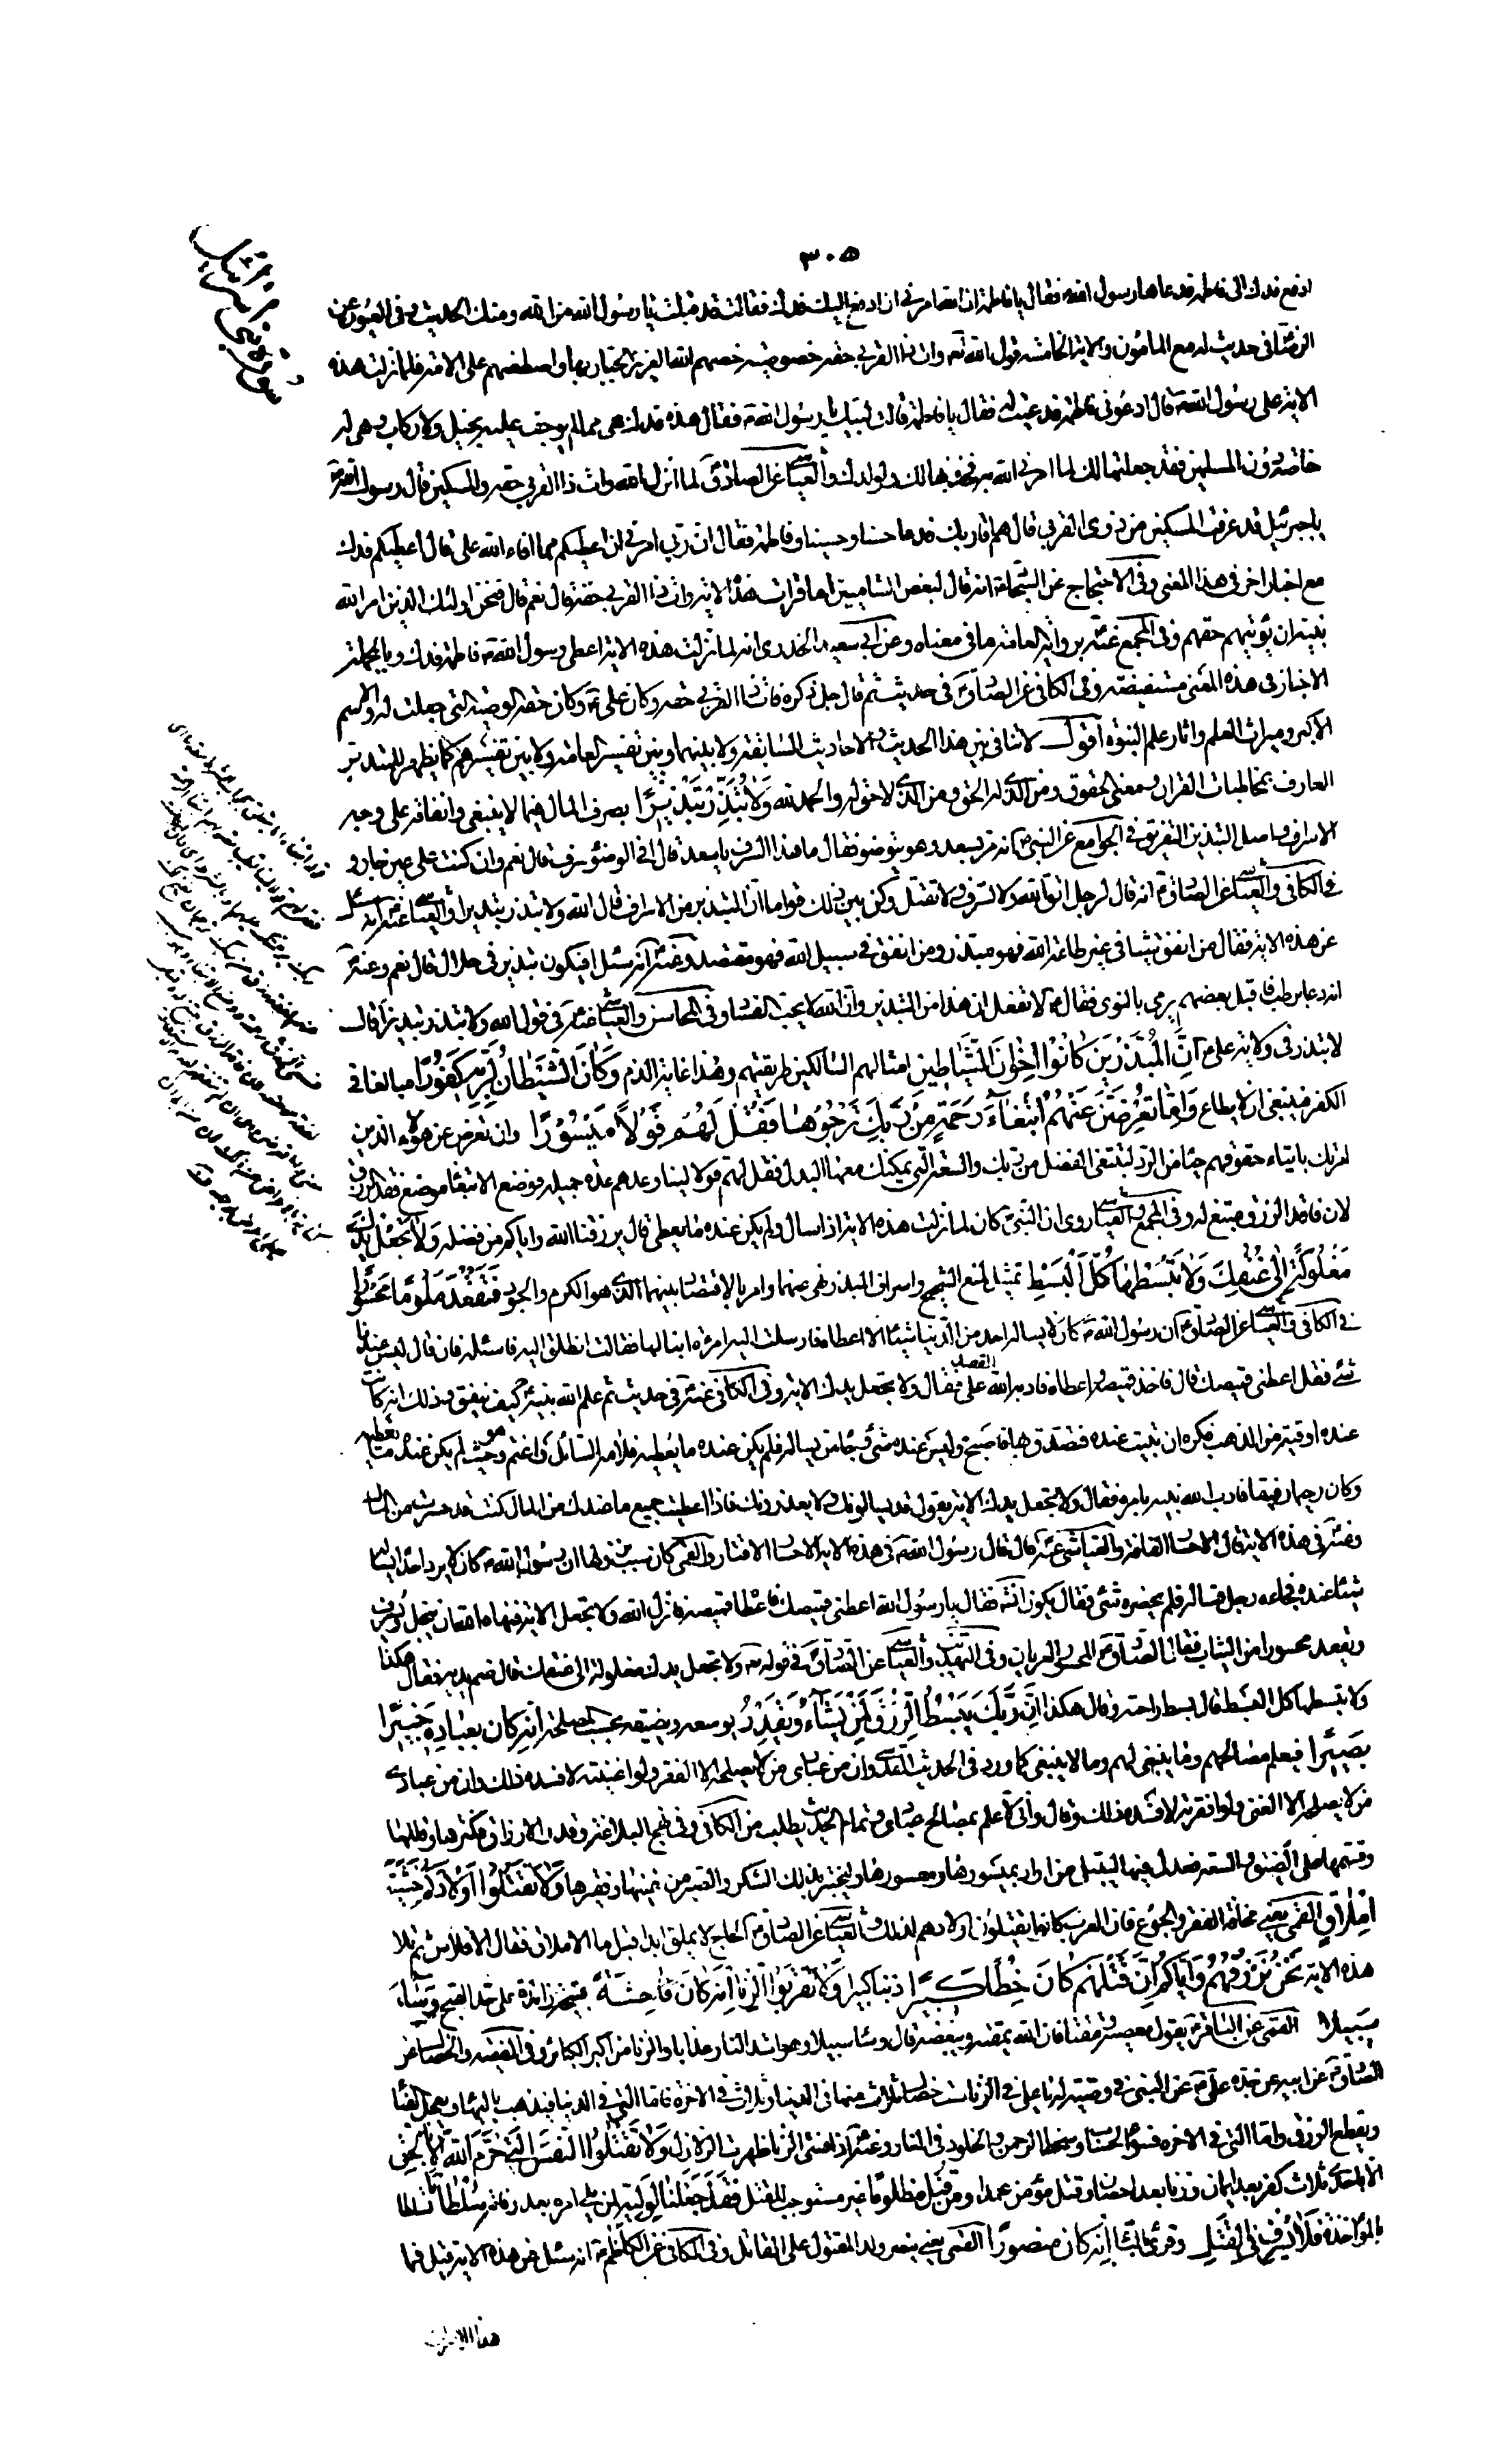 ٣٠٥
سورة بنى اسرائيل
ادفع فدك الى فاطمة فدعاها رسول الله فقال يا فاطمة ان الله امرنى ان ادفع اليك فدك فقالت قد قبلت يا رسول الله من الله ومنك الحديث وفى العيون عن
الرضا فى حديث له مع المامون والاية الخامسة قول الله تعالى وات ذا القربى حقه خصوصية خصهم الله العزيز الجبار بها واصطفاهم على الامة فلما نزلت هذه
الاية على رسول الله قال ادعوا لى فاطمة فدعيت له فقال يا فاطمة قالت لبيك يا رسول الله فقال هذه فدك هى مما لم يوجف عليه بخيل ولا ركاب وهى لى
خاصة دون المسلمين فقد جعلتها لك لما امرنى الله به فخذيها لك ولولدك والعياشى عن الصادق لما انزل الله وات ذا القربى حقه والمسكين قال رسول الله
يا جبرئيل قد عرفت المسكين من ذوى القربى قال هم اقاربك فدعا حسنا وحسينا وفاطمة فقال ان ربى امرنى ان اعطيكم مما افاء الله على قال اعطيتكم فدك
مع اخبار اخر فى هذا المعنى وفى الاحتجاج عن السجاد انه قال لبعض الشاميين اما قرات هذه الاية وات ذا القربى حقه قال نعم قال فنحن اولئك الذين امر الله
نبيه ان يؤتيهم حقهم وفى المجمع عنه برواية العامة ما فى معناه وعن ابى سعيد الخدرى انه لما نزلت هذه الاية اعطى رسول الله فاطمة فدك وبالجملة
الاخبار فى هذه المعنى مستفيضة وفى الكافى عن الصادق فى حديث ثم قال جل ذكره فات ذا القربى حقه وكان على وكان حقه الوصية التى جعلت له والاسم
الاكبر وميراث العلم واثار علم النبوة اقول لا تنافى بين هذا الحديث والاحاديث السابقة ولا بينهما وبين تفسير العامة ولا بين تفسيرهم كما يظهر للمتدبر
العارف بمخاطبات القران ومعنى الحقوق ومن الذى له الحق ومن الذى لا حق له والحمد لله وَلَا تُبَذِّرْ تَبْذِيرًا بصرف المال فيما لا ينبغى وانفاقه على وجه
الاسراف واصل التبذير التفريق فى الجوامع عن النبى انه مر بسعد وهو يتوضؤ فقال ما هذا السرف يا سعد قال افى الوضوء سرف قال نعم وان كنت على نهر جار و
فى الكافى والعياشى عن الصادق انه قال لرجل اتق الله ولا تسرف ولا تقتر وكن بين ذلك قواما ان التبذير من الاسراف قال الله ولا تبذر تبذيرا والعياشى عنه انه سئل
عن هذه الاية فقال من انفق شيئا فى غير طاعة الله فهو مبذر ومن انفق فى سبيل الله فهو مقتصد وعنه انه سئل افيكون تبذير فى حلال قال نعم وعنه
انه دعا برطب فاقبل بعضهم يرمى بالنوى فقال لا تفعل ان هذا من التبذير وان الله لا يحب الفساد وفى المحاسن والعياشى عنه فى قوله الله ولا تبذر تبذيرا قال
لا تبذر فى ولاية على اِنَّ الْمُبَذِّرِينَ كَانُوا اِخْوَانَ الشَّيَاطِينِ امثالهم السالكين طريقتهم وهذا غاية الذم وَكَانَ الشَّيْطَانُ لِرَبِّهِ كَفُورًا مبالغا فى
الكفر فينبغى ان لا يطاع وَاِمَّا تُعْرِضَنَّ عَنْهُمُ ابْتِغَاءَ رَحْمَةٍ مِنْ رَبِّكَ تَرْجُوهَا فَقُلْ لَهُمْ قَوْلًا مَيْسُورًا وان تعرض عن هؤلاء الذين
امرتك بايتاء حقوقهم حياء من الرد لتبتغى الفضل من ربك والسعة التى يمكنك معها البذل فقل لهم قولا لينا وعدهم عدة جميلة فوضع الابتغاء موضع فقد الرزق
لان فاقد الرزق مبتغ له وفى المجمع والعياشى روى ان النبى كان لما نزلت هذه الاية اذا سال ولم يكن عنده ما يعطى قال يرزقنا الله واياكم من فضله وَلَا تَجْعَلْ يَدَكَ
مَغْلُولَةً اِلَى عُنُقِكَ وَلَا تَبْسُطْهَا كُلَّ الْبَسْطِ تمثيل لمنع الشحيح واسراف المبذر نهى عنهما وامر بالاقتصاد بينهما الذى هو الكرم والجود فَتَقْعُدَ مَلُومًا مَحْسُورًا
فى الكافى والعياشى عن الصادق ان رسول الله كان لا يساله احد من الدنيا شيئا الا اعطاه فارسلت اليه امرئة ابنا لها فقالت انطلق اليه فاسئله فان قال ليس عندنا
شئ فقل اعطنى قميصك قال فاخذ قميصه واعطاه فادبه الله على القصد فقال ولا تجعل يدك الاية وفى الكافى عنه فى حديث ثم علم الله نبيه كيف ينفق وذلك انه كانت
عنده اوقية من الذهب فكره ان يبيت عنده فتصدق بها فاصبح وليس عنده شئ وجاء من يساله فلم يكن عنده ما يعطيه فلامه السائل واغتم هو حيث لم يكن عنده ما يعطيه
وكان رحيما رفيقا فادب الله نبيه بامره فقال ولا تجعل يدك الاية يقول قد يسالونك ولا يعذرونك فاذا اعطيت جميع ما عندك من المال كنت قد حسرت من المال
وعنه فى هذه الاية قال الاحسار الفاقة والعياشى عنه قال قال رسول الله فى هذه الاية الاحسار الاقتار والقمى كان سبب نزولها ان رسول الله كان لا يرد احدا يساله
شيئا عنده فجاءه رجل فساله فلم يحضره شئ فقال يكون انشاء الله فقال يا رسول الله اعطنى قميصك فاعطاه قميصه فانزل الله ولا تجعل الاية فنهاه الله ان يبخل ويسرف
ويقعد محسورا من الثياب فقال الصادق المحسور العريان وفى التهذيب والعياشى عن الصادق فى قوله ولا تجعل يدك مغلولة الى عنقك قال ضم يديه فقال هكذا
ولا تبسطها كل البسط قال بسط راحته وقال هكذا اِنَّ رَبَّكَ يَبْسُطُ الرِّزْقَ لِمَنْ يَشَاءُ وَيَقْدِرُ يوسعه ويضيقه بحسب المصلحة اِنَّهُ كَانَ بِعِبَادِهِ خَبِيرًا
بَصِيرًا فيعلم مصالحهم وما ينبغى لهم وما لا ينبغى كما ورد فى الحديث القدسى وان من عبادى من لا يصلحه الا الفقر ولو اغنيته لافسده ذلك وان من عبادى
من لا يصلحه الا الغنى ولو افقرته لافسده ذلك وقال وانى لاعلم بمصالح عبادى وتمام الحديث يطلب من الكافى وفى نهج البلاغة وقدر الارزاق فكثرها وقللها
وقسمها على الضيق والسعة فعدل فيها ليبتلى من اراد بميسورها ومعسورها وليختبر بذلك الشكر والصبر من غنيها وفقيرها وَلَا تَقْتُلُوا اَوْلَادَكُمْ خَشْيَةَ
اِمْلَاقٍ القمى يعنى مخافة الفقر والجوع فان العرب كانوا يقتلون اولادهم لذلك والعياشى عن الصادق الحاج لا يملق ابدا قيل ما الاملاق فقال الافلاس ثم تلا
هذه الاية نَحْنُ نَرْزُقُهُمْ وَاِيَّاكُمْ اِنَّ قَتْلَهُمْ كَانَ خِطْاً كَبِيرًا ذنبا كبيرا وَلَا تَقْرَبُوا الزِّنَا اِنَّهُ كَانَ فَاحِشَةً قبيحة زائدة على حد القبح وَسَاءَ
سَبِيلًا القمى عن الباقر يقول معصية ومقتا فان الله يمقته ويبغضه قال وساء سبيلا وهو اشد النار عذابا والزنا من اكبر الكبائر وفى الفقيه والخصال عن
الصادق عن ابيه عن جده على عن النبى فى وصيته له يا على فى الزنا ست خصال ثلاث منها فى الدنيا وثلاث فى الاخرة فاما التى فى الدنيا فيذهب بالبهاء ويعجل الفناء
ويقطع الرزق واما التى فى الاخرة فسوء الحساب وسخط الرحمن والخلود فى النار وعنه اذا فشى الزنا ظهرت الزلازل وَلَا تَقْتُلُوا النَّفْسَ الَّتِى حَرَّمَ اللّٰهُ اِلَّا بِالْحَقِّ
الا باحدى ثلاث كفر بعد ايمان وزنا بعد احصان وقتل مؤمن عمدا وَمَنْ قُتِلَ مَظْلُومًا غير مستوجب للقتل فَقَدْ جَعَلْنَا لِوَلِيِّهِ لمن يلى امره بعد وفاته سُلْطَانًا تسلطا
بالمؤاخذة فَلَا يُسْرِفْ فِى الْقَتْلِ وقرئ بالتاء اِنَّهُ كَانَ مَنْصُورًا القمى يعنى ينصر ولد المقتول على القاتل وفى الكافى عن الكاظم انه سئل عن هذه الاية قيل فما
هذا الاسراف